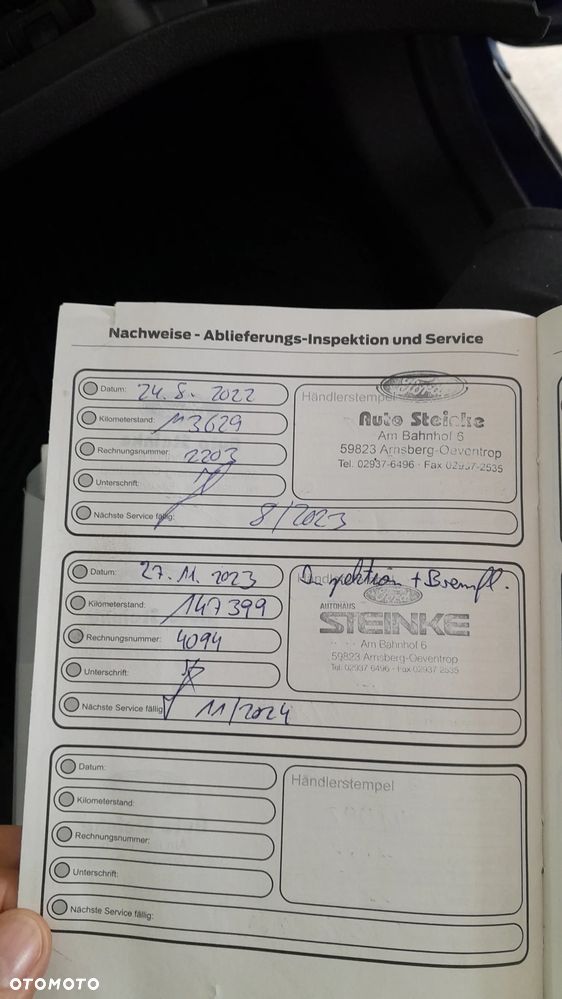 Nachweise - Ablieferungs-Inspektion und Service
Datum: 24.8.2022
Kilometerstand: 113629
Rechnungsnummer: 2203
Unterschrift:
Nächste Service fällig: 8/2023
Händlerstempel
Ford
Auto Steinke
Am Bahnhof 6
59823 Arnsberg-Oeventrop
Tel. 02937-6496 · Fax 02937-2535
Datum: 27.11.2023
Kilometerstand: 147399
Rechnungsnummer: 4094
Unterschrift:
Nächste Service fällig: 11/2024
Inspektion + Bremsfl.
Ford
AUTOHAUS
STEINKE
Am Bahnhof 6
59823 Arnsberg-Oeventrop
Tel. 02937 6496 · Fax 02937 2535
Datum:
Kilometerstand:
Rechnungsnummer:
Unterschrift:
Nächste Service fällig:
Händlerstempel
OTOMOTO